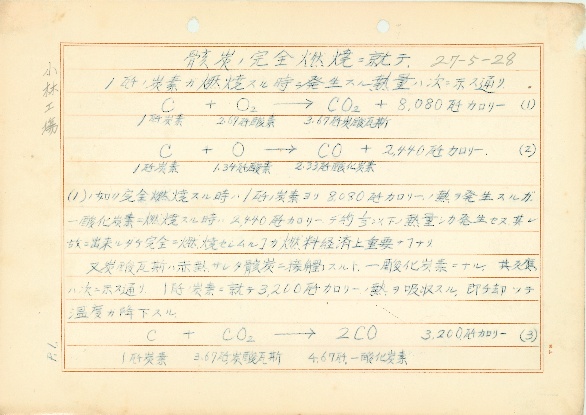 骸炭ノ完全燃焼ニ就テ. 27-5-28
小林工場
1瓩ノ炭素ガ燃焼スル時ニ発生スル熱量ハ次ニ示ス通リ
C + O₂ → CO₂ + 8,080瓩カロリー (1)
1瓩炭素 2.67瓩酸素 3.67瓩炭酸瓦斯
C + O → CO + 2,440瓩カロリー. (2)
1瓩炭素 1.34瓩酸素 2.33瓩酸化炭素
(1)ノ如ク完全燃焼スル時ハ1瓩炭素ヨリ8,080瓩カロリーノ熱ヲ発生スルガ
一酸化炭素ニ燃焼スル時ハ2,440瓩カロリー 熱量シカ発生セズ其レ
故ニ出来ルダケ完全ニ燃焼セシムル ガ燃料経済上重要デアリ
又炭酸瓦斯ハ赤熱サレタ骸炭ニ接触スルト、一酸化炭素トナル、其
ハ次ニ示ス通リ 1瓩炭素ニ就テ3,200瓩カロリーノ熱ヲ吸収スル、即チ却ツテ
温度ガ降下スル
C + CO₂ → 2CO 3,200瓩カロリー (3)
1瓩炭素 3.67瓩炭酸瓦斯 4.67瓩.一酸化炭素